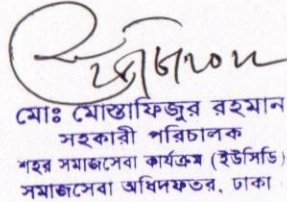 মোঃ মোস্তাফিজুর রহমান
সহকারী পরিচালক
শহর সমাজসেবা কার্যক্রম (ইউসিডি)
সমাজসেবা অধিদফতর, ঢাকা